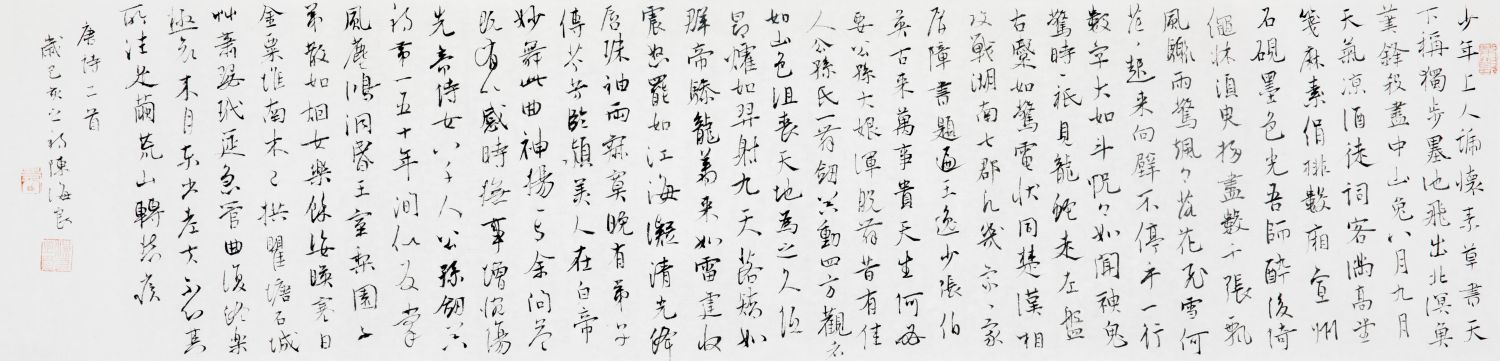 少年上人號懷素草書天
下稱獨步墨池飛出北溟魚
筆鋒殺盡中山兔八月九月
天氣涼酒徒詞客滿高堂
箋麻素絹排數廂宣州
石硯墨色光吾師醉後倚
繩牀須臾掃盡數千張飄
風驟雨驚颯々落花飛雪何
茫々起來向壁不停手一行
數字大如斗怳々如聞神鬼
驚時々祇見龍蛇走左盤
右蹙如驚電狀同楚漢相
攻戰湖南七郡凡幾家々家
屏障書題遍王逸少張伯
英古來萬事貴天生何必
要公孫大娘渾脫舞昔有佳
人公孫氏一舞劍器動四方觀者
如山色沮喪天地為之久低
昂㸌如羿射九天落矯如
群帝驂龍翔來如雷霆收
震怒罷如江海凝清光絳
唇珠袖兩寂寞晚有弟子
傳芬芳臨潁美人在白帝
妙舞此曲神揚々與余問答
既有以感時撫事增惋傷
先帝侍女八千人公孫劍器
初第一五十年間似反掌
風塵澒洞昏王室梨園子
弟散如烟女樂餘姿映寒日
金粟堆南木已拱瞿塘石城
草蕭瑟玳筵急管曲復終樂
極哀來月東出老夫不知其
所往足繭荒山轉愁疾
唐詩二首
歲己亥之初陳海良